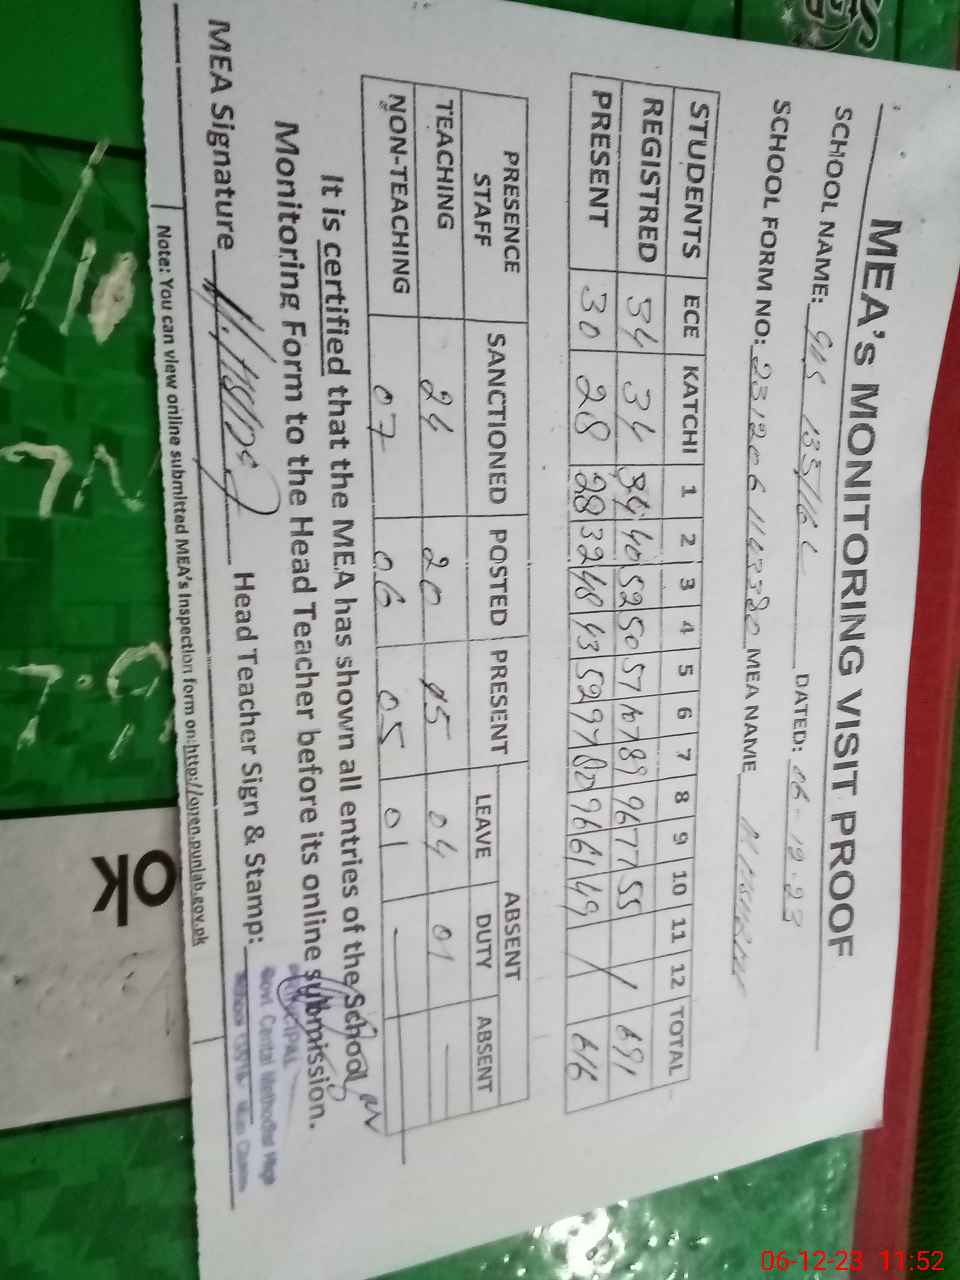 MEA's MONITORING VISIT PROOF
SCHOOL NAME: 135/16 L DATED: 06-12-23
SCHOOL FORM NO: MEA NAME
STUDENTS ECE KATCHI 1 2 3 4 5 6 7 8 9 10 11 12 TOTAL
REGISTRED 34 34 34 40 52 50 57 107 89 96 77 55 / 691
PRESENT 30 28 28 32 48 43 52 97 80 96 61 49 / 616
PRESENCE ABSENT
STAFF SANCTIONED POSTED PRESENT LEAVE DUTY ABSENT
TEACHING 24 20 15 04 01 —
NON-TEACHING 07 06 05 01 —
It is certified that the MEA has shown all entries of the School
Monitoring Form to the Head Teacher before its online submission.
MEA Signature Head Teacher Sign & Stamp:
PRINCIPAL
Govt. High
Note: You can view online submitted MEA's Inspection form on:http://open.punjab.gov.pk
OK
06-12-23 11:52